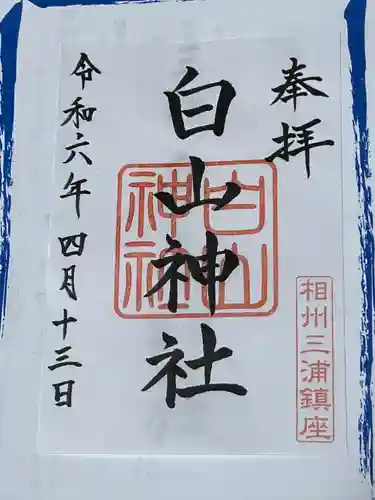 奉拝
相州三浦鎮座
白山神社
白山神社
令和六年四月十三日